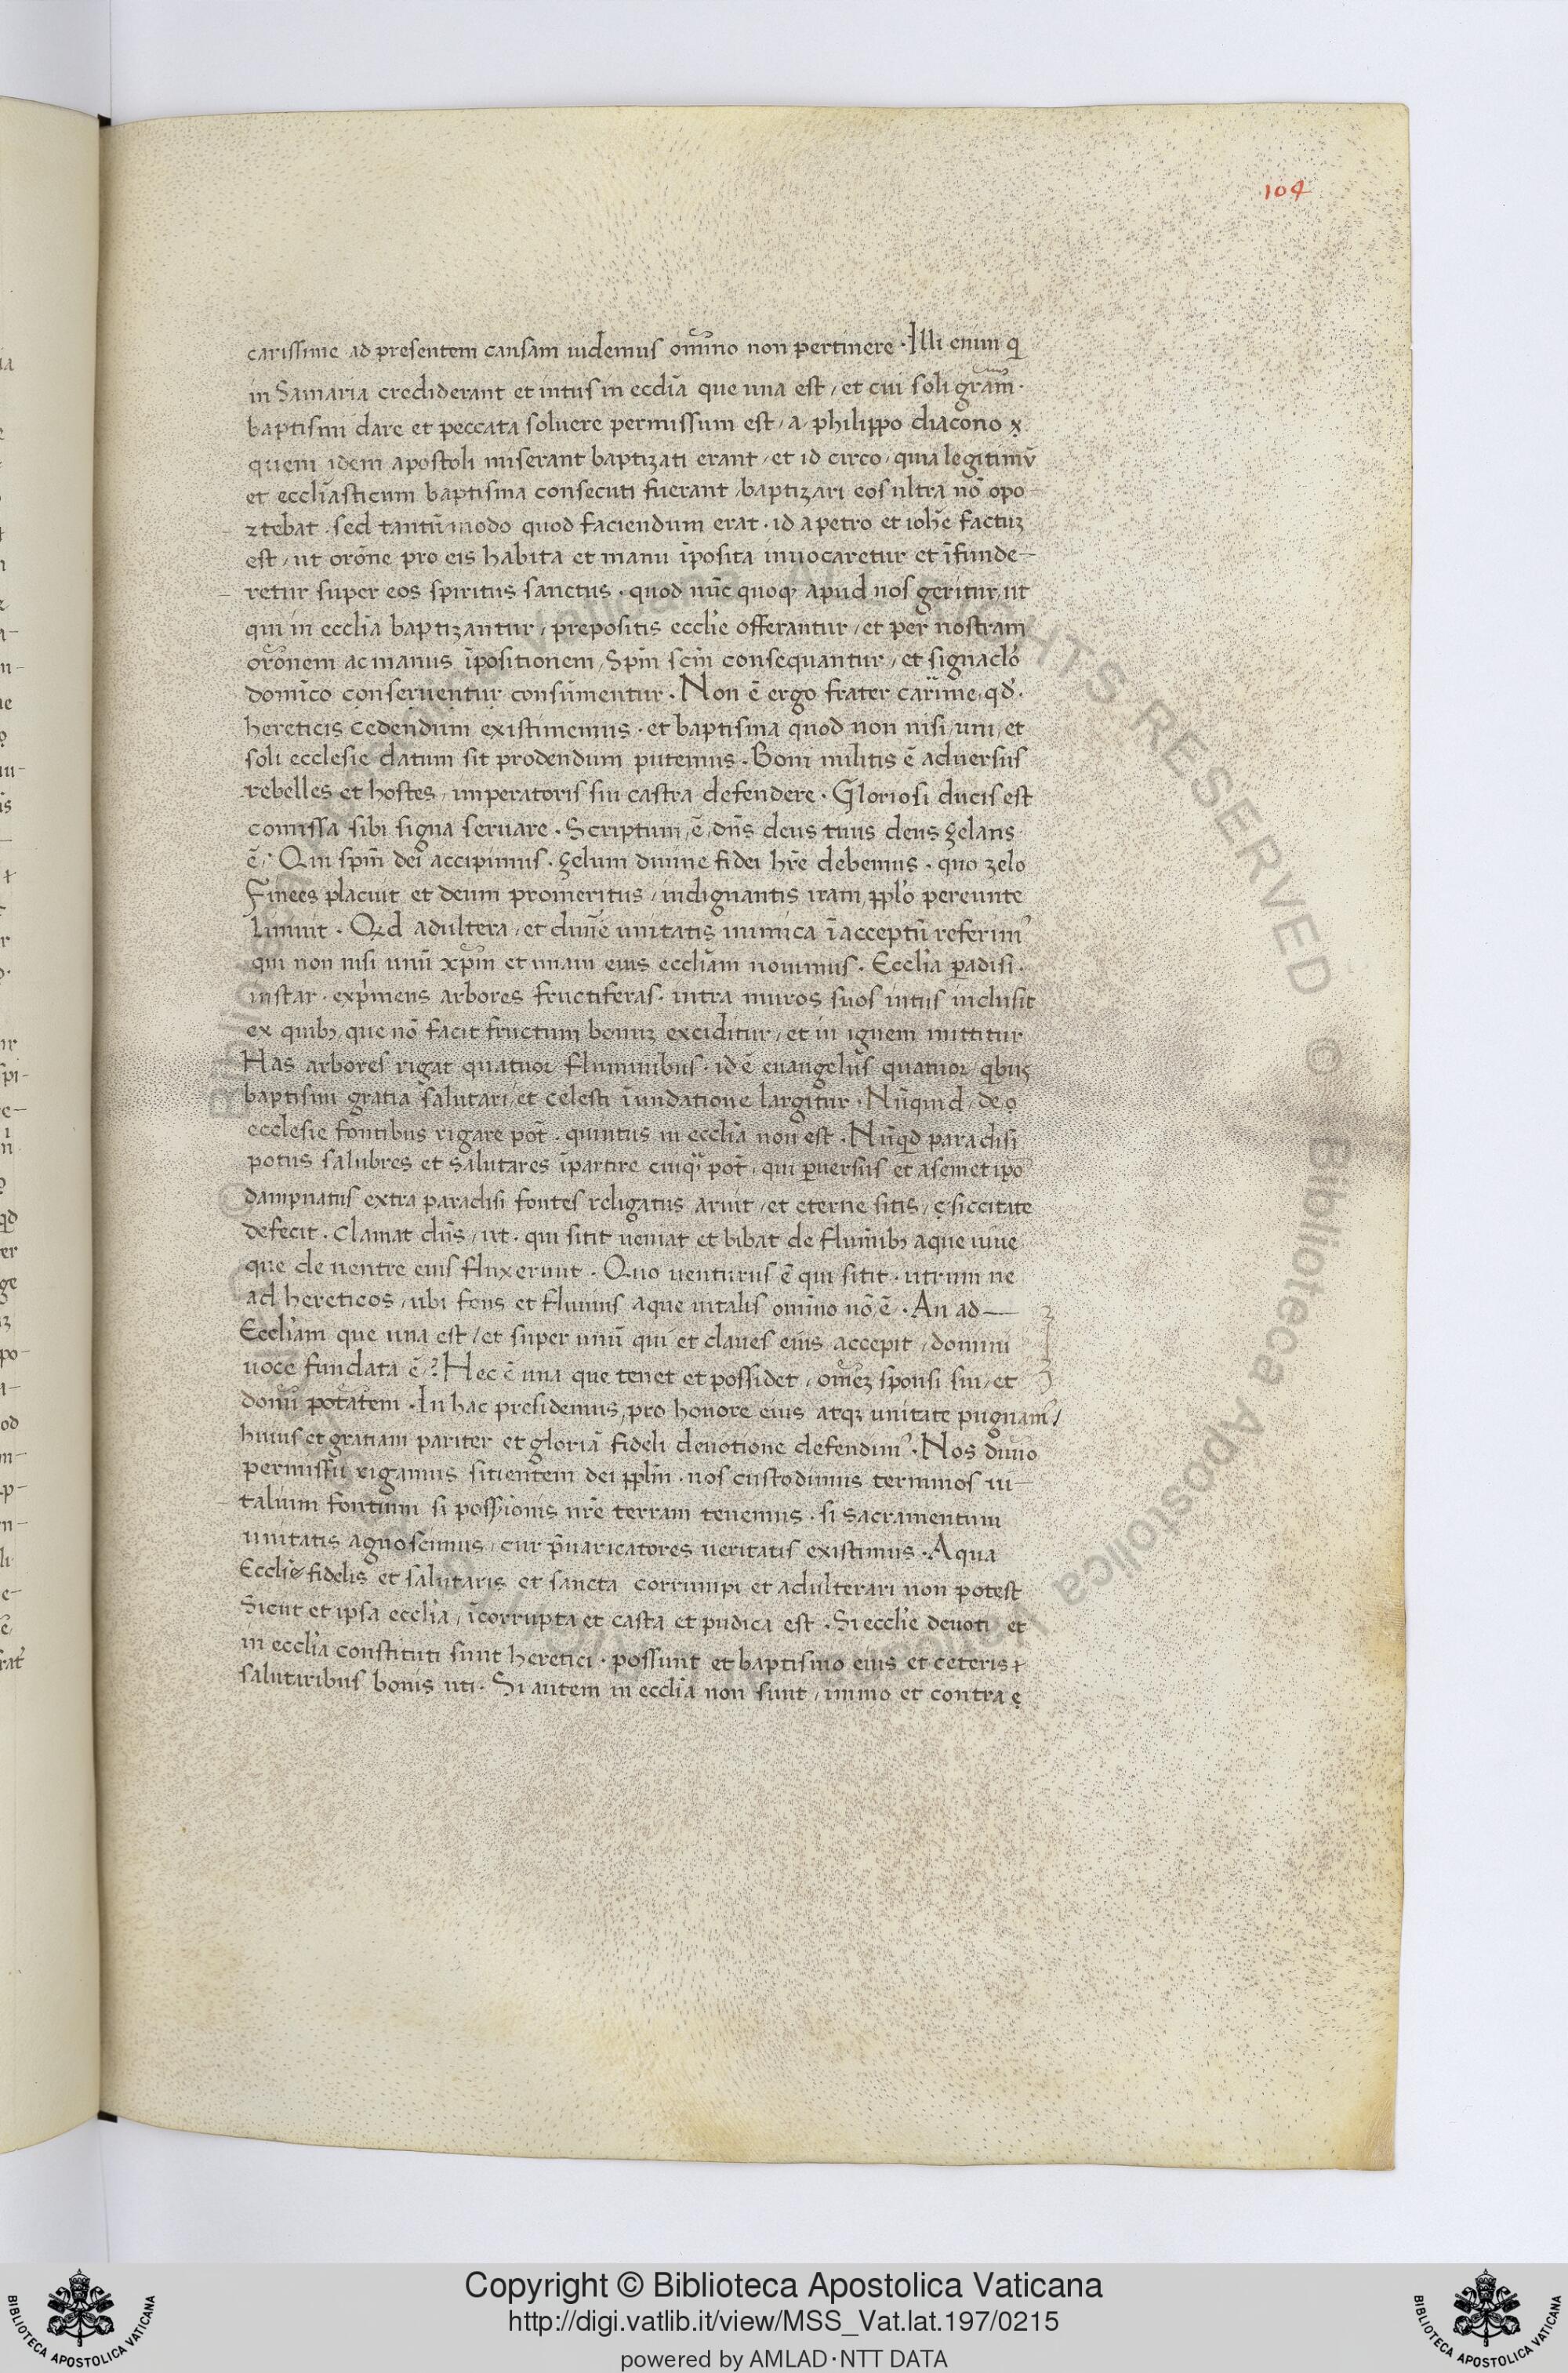 104
carissime ad presentem causam uidemus om̃ino non pertinere · Illi enim q̇
in Samaria crediderant et intus in eccl̃ia que una est / et cui soli grãm ·
baptismi dare et peccata soluere permissum est / a / philippo diacono
quem idem apostoli miserant baptizati erant / et id circo / quia legitimũ
et eccl̃iasticum baptisma consecuti fuerant / baptizari eos ultra nõ opo
rtebat · sed tantũmodo quod faciendum erat · id a petro et ioh̃e factuꝫ
est / ut orõne pro eis habita et manu ĩposita inuocaretur et ĩfunde-
retur super eos spiritus sanctus · quod nũc quoqꝫ apud nos geritur / ut
qui in eccl̃ia baptizantur / prepositis eccl̃ie offerantur / et per nostram
orõnem ac manus ĩpositionem / Sp̃m sc̃m consequantur / et signacl̃o
domĩco conseruentur consũmentur · Non ẽ ergo frater car̃ime / qd̃ ·
hereticis cedendum existimemus · et baptisma quod non nisi / uni / et
soli ecclesie datum sit prodendum putemus · Boni militis ẽ aduersus
rebelles et hostes / imperatoris sui castra defendere · Gloriosi ducis est
comissa sibi signa seruare · Scriptum / ẽ / dñs deus tuus deus zelans
ẽ / Qui sp̃m dei accipimus · zelum diuine fidei hr̃e debemus · quo zelo
Finees placuit et deum promeritus / indignantis iram / ppl̃o pereunte
liniuit · Qd adultera / et diuiñe unitatis inimica ĩ acceptũ referimꝰ
qui non nisi unũ xp̃m et unam eius eccl̃iam nouimus · Eccl̃ia ꝑadisi ·
instar · exp̃mens arbores fructiferas · intra muros suos intus inclusit
ex quibꝫ / que nõ facit fructum bonuꝫ exciditur / et in ignem mittitur
Has arbores rigat quatuor fluminibus · id ẽ euangeliis quatuor / qbuꝫ
baptismi gratia salutari / et celesti ĩundatione largitur · Nũquid / de
ecclesie fontibus rigare pot̃ · qui intus in eccl̃ia non est · Nũqd paradisi
potus salubres et salutares ĩpartire cuiqꝫ pot̃ / qui ꝑuersus et a semet ip̃o
dampnatus extra paradisi fontes religatus aruit / et eterne sitis / siccitate
defecit · Clamat dñs / ut · qui sitit ueniat et bibat de flumĩbꝫ aque uiue
que de uentre eius fluxerunt · Quo uenturus ẽ qui sitit · utrum ne
ad hereticos / ubi fons et fluuius aque uitalis om̃ino nõ ẽ · An ad —
Eccl̃iam que una est / et super unũ qui et claues eius accepit / domini
uoce fundata ẽ / ? Hec ẽ una que tenet et possidet / om̃eꝫ sponsi sui / et
dom̃i potãtem · In hac presidemus / pro honore eius atqꝫ unitate pugnamꝰ /
huius et gratiam pariter et gloriã fideli deuotione defendimꝰ · Nos diuĩo
permissũ rigamus sitientem dei ppl̃m · nos custodimus terminos ui-
talium fontium si possionis nr̃e terram tenemus · si sacramentum
unitatis agnoscimus / cur p̃uaricatores ueritatis existimus · Aqua
Eccl̃ie fidelis et salutaris et sancta corrumpi et adulterari non potest
Sicut et ipsa eccl̃ia / ĩcorrupta et casta et pudica est · Si eccl̃ie deuoti et
in eccl̃ia constituti sunt heretici · possunt et baptismo eius et ceteris
salutaribus bonis uti · Si autem in eccl̃ia non sunt / immo et contra
Copyright © Biblioteca Apostolica Vaticana
http://digi.vatlib.it/view/MSS_Vat.lat.197/0215
powered by AMLAD·NTT DATA
BIBLIOTECA APOSTOLICA VATICANA
BIBLIOTECA APOSTOLICA VATICANA